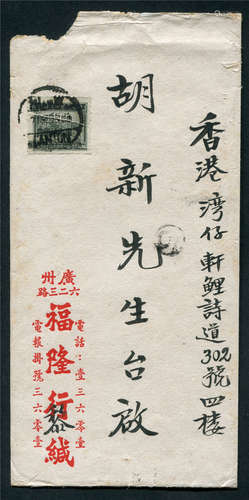 香港灣仔軒鯉詩道302號四樓
胡新先生台啟
廣州
六二三路
電話：壹三六零壹
福隆行緘
電報掛號三六零壹
CANTON